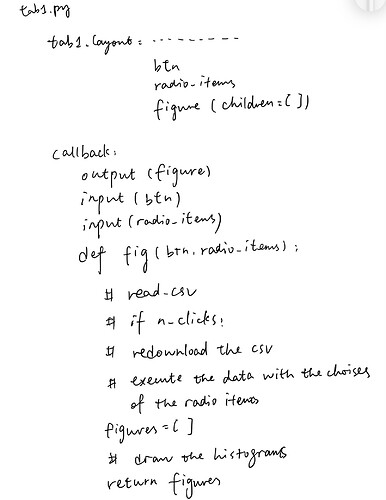 tab1.py
tab1.layout : - - - - - - - - -
btn
radio_items
figure (children=[])
callback:
output (figure)
input (btn)
input (radio_items)
def fig (btn, radio_items) :
# read_csv
# if n_clicks:
# redownload the csv
# exeute the data with the choises
of the radio items
figures = [ ]
# draw the histograms
return figures